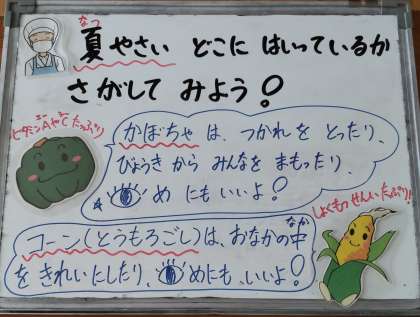 夏やさい どこに はいっているか
なつ
さがして みよう!
ビタミンAやCたっぷり
かぼちゃは、つかれを とったり、
びょうき から みんなを まもったり、
め にも いいよ!
しょくもつせんいたっぷり!!
コーン(とうもろこし)は、おなかの中
なか
を きれいにしたり、めにも、いいよ!